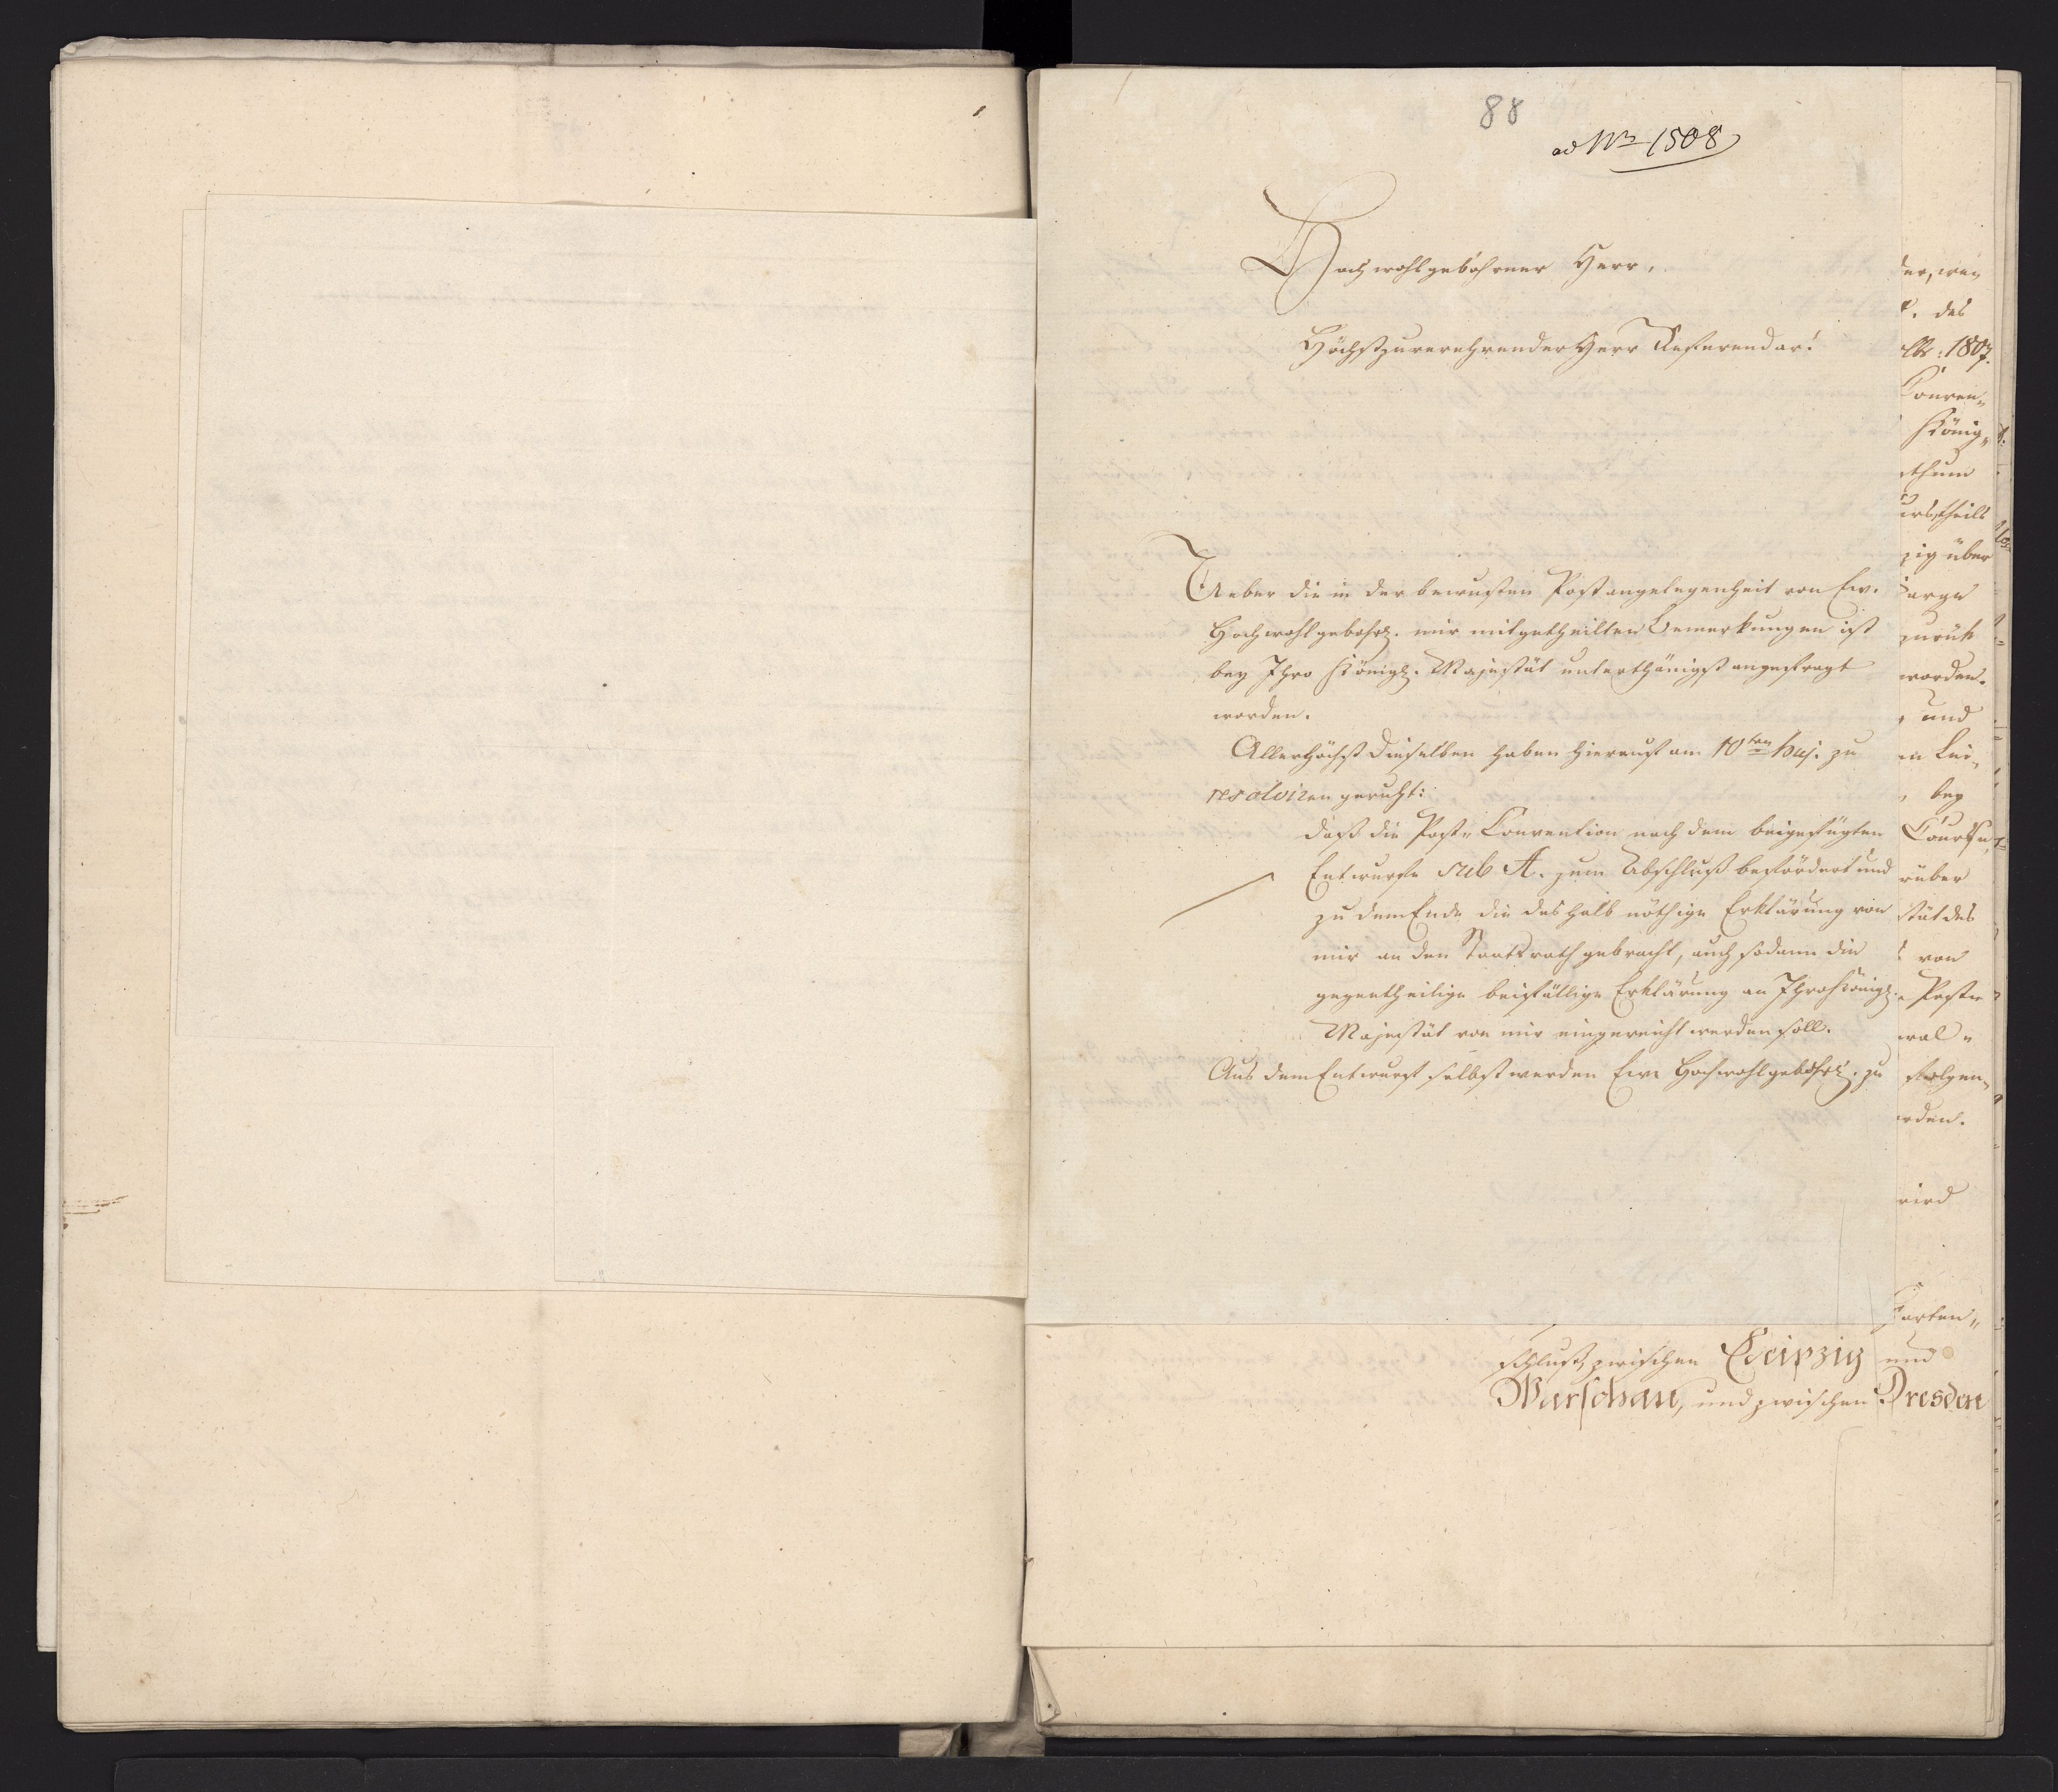 88
ad Nro 1508
Hochwohlgebohrner Herr,
Höchstzuverehrender Herr Referendar!
Ueber die in der bewusten Postangelegenheit von Ew.
Hochwohlgebohrn. mir mitgetheilten Bemerkungen ist
bey Ihro Königl. Majestät unterthänigst angefragt
worden.
Allerhöchst Dieselben haben hierauf am 10ten huj. zu
resolviren geruht:
daß die Post-Convention nach dem beigefügten
Entwurfe sub A. zum Abschluß befördert und
zu dem Ende die deshalb nöthige Erklärung von
mir an den Staatsrath gebracht, auch sodann die
gegentheilige beifällige Erklärung an Ihro Königl.
Majestät von mir eingereicht werden soll.
Aus dem Entwurf selbst werden Ew. Hochwohlgebohrn. zu
. des
1807.
Conven-
König-
thum
theils
zig über
zurük
worden.
und
bey
Course
rüber
stät des
von
Post-
folgen-
rden.
wird
Karten-
schluß, zwischen Leipzig und
Warschau, und zwischen Dresden